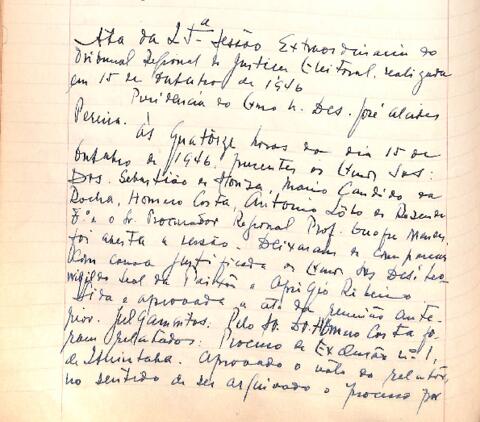 Ata da 25ª Sessão Extraordinaria do
Tribunal Regional de Justiça Eleitoral, realizada
em 15 de Outubro de 1946
Presidencia do Exmo Sr. Des. José Alcides
Pereira.
Às quatorze horas do dia 15 de
Outubro de 1946, presentes os Exmos Srs:
Drs. Sebastião de Souza, Mario Candido da
Rocha, Homero Costa, Antonio Lôbo de Rezende
e o Sr. Procurador Regional Prof. Onofre Mendes,
foi aberta a sessão. Deixaram de comparecer
com causa justificada os Exmos Srs Des. Leo-
vigildo Leal da Paixão e Aprigio Ribeiro
Lida e aprovada a ata da reunião ante-
rior. Julgamentos: Pelo Sr. Dr. Homero Costa fo-
ram relatados: Processo de Exclusão nº 1,
de Ibiraci. Aprovado o voto do relator,
no sentido de ser arquivado o processo por